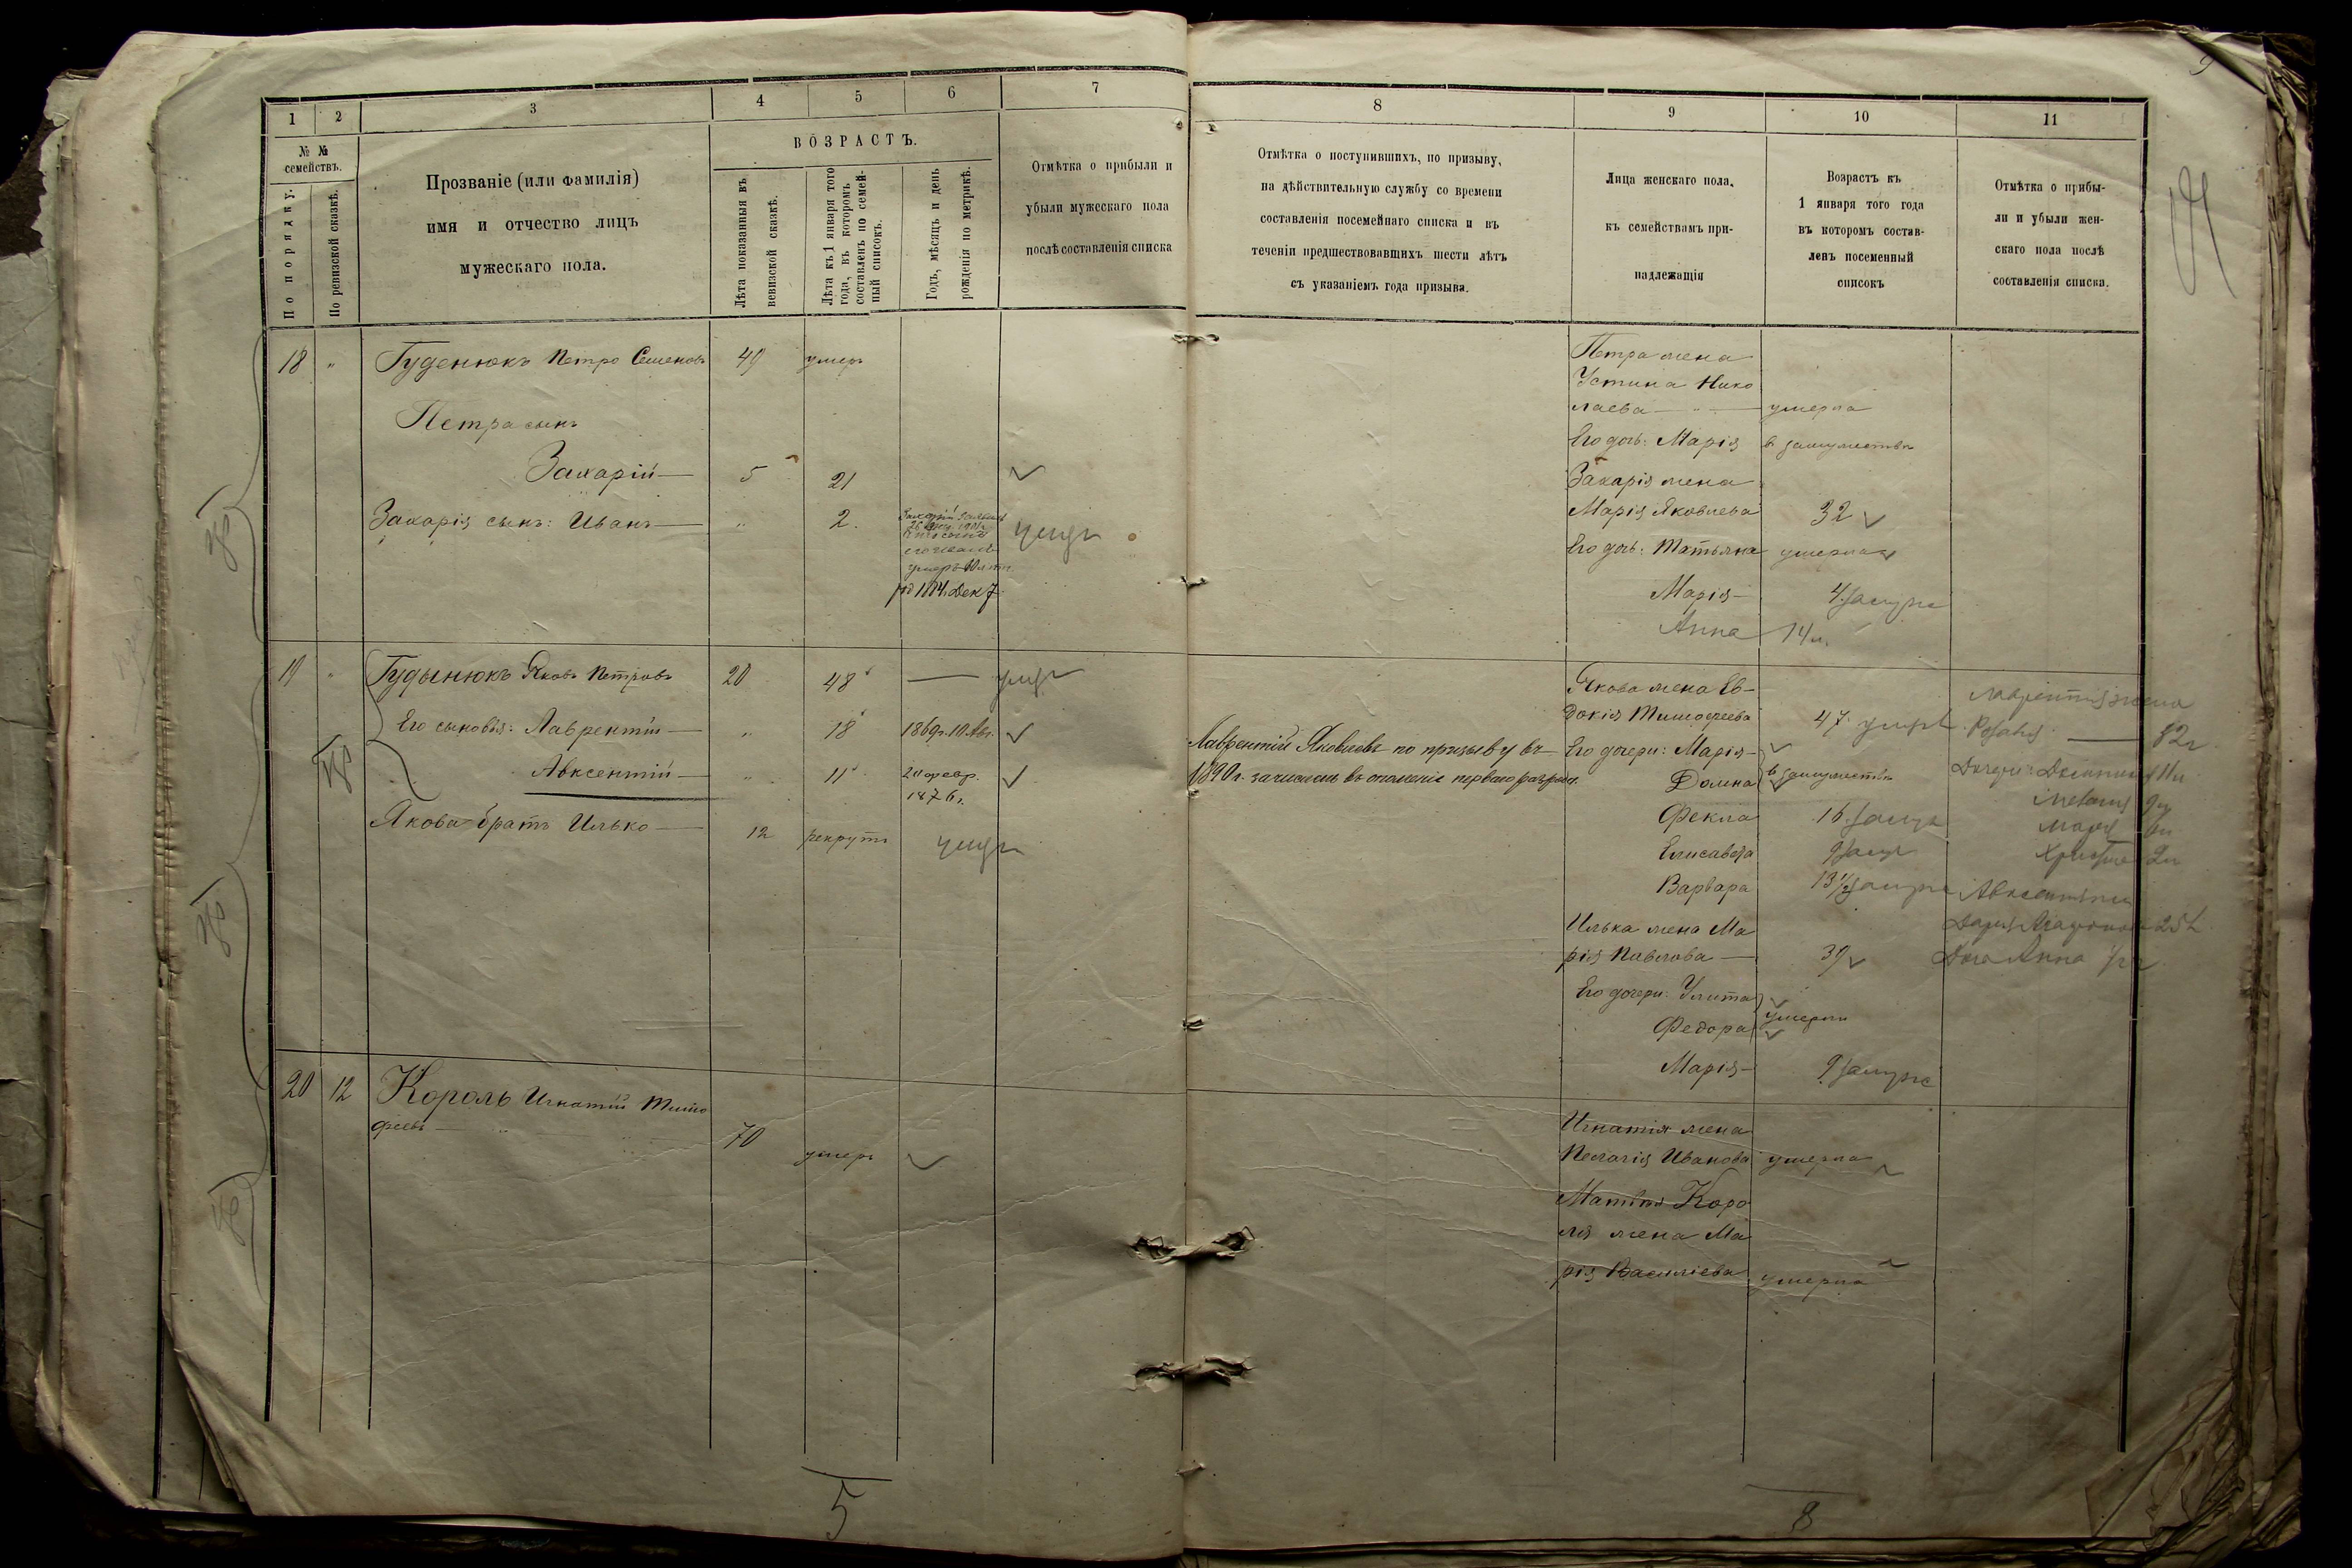 1
2
3
4
5
6
7
8
9
10
11
№ №
семействъ.
По порядку.
По ревизской сказкѣ.
Прозваніе (или фамилія)
имя и отчество лицъ
мужескаго пола.
ВОЗРАСТЪ.
Лѣта показанныя въ
вевизской сказкѣ.
Лѣта къ 1 января того
года, въ которомъ
составленъ по семей-
ный списокъ.
Годъ, мѣсяцъ и день
рожденія по метрикѣ.
Отмѣтка о прибыли и
убыли мужескаго пола
послѣ составленія списка
Отмѣтка о поступившихъ, по призыву,
на дѣйствительную службу со времени
составленія посемейнаго списка и въ
теченіи предшествовавшихъ шести лѣтъ
съ указаніемъ года призыва.
Лица женскаго пола,
къ семействамъ при-
надлежащія
Возрастъ къ
1 января того года
въ которомъ состав-
ленъ посеменный
списокъ
Отмѣтка о прибы-
ли и убыли жен-
скаго пола послѣ
составленія списка.
18 " Гуденюкъ Петро Семеновъ 49 умеръ
Петра сынъ
Захарій — 5 21
Захарія сынъ: Иванъ — " 2. умеръ
Дек 7
Петра жена
Устина Нико
лаева — умерла
Его дочь: Марія въ замужествѣ
Захарія жена
Марія Яковлева 32
Его дочь: Татьяна умерла
Марія — 4 замуже
Анна 14 л.
19 " Гудынюкъ Яковъ Петровъ 20 48 — умеръ
Его сыновья: Лаврентій — " 18 1869 г. 10 Авг.
Авксентій — " 11 20 февр.
1876 г.
Якова братъ Илько — 12 рекрутъ умеръ
Лаврентій Яковлевъ по призыву въ
1890 г. зачисленъ въ ополченіе перваго разряда.
Якова жена Ев-
докія Тимофеева 47 умерла
Его дочери: Марія —
Домна въ замужествѣ
Фекла 16 замуж
Елисавета 9 замуж
Варвара 13 1/2 замуже
Илька жена Ма
рія Павлова — 39
Его дочери: Улита
Федора умерли
Марія — 9 замуже
Лаврентія жена
32 г
Дочери: 11 л
Марія 6 л
2 л
Авксентія
Анна
20 12 Король Игнатій Тимо
феевъ — 70 умеръ
Игнатія жена
Пелагія Иванова умерла
Матвѣя Коро
ля жена Ма
рія Василіева умерла
5
8